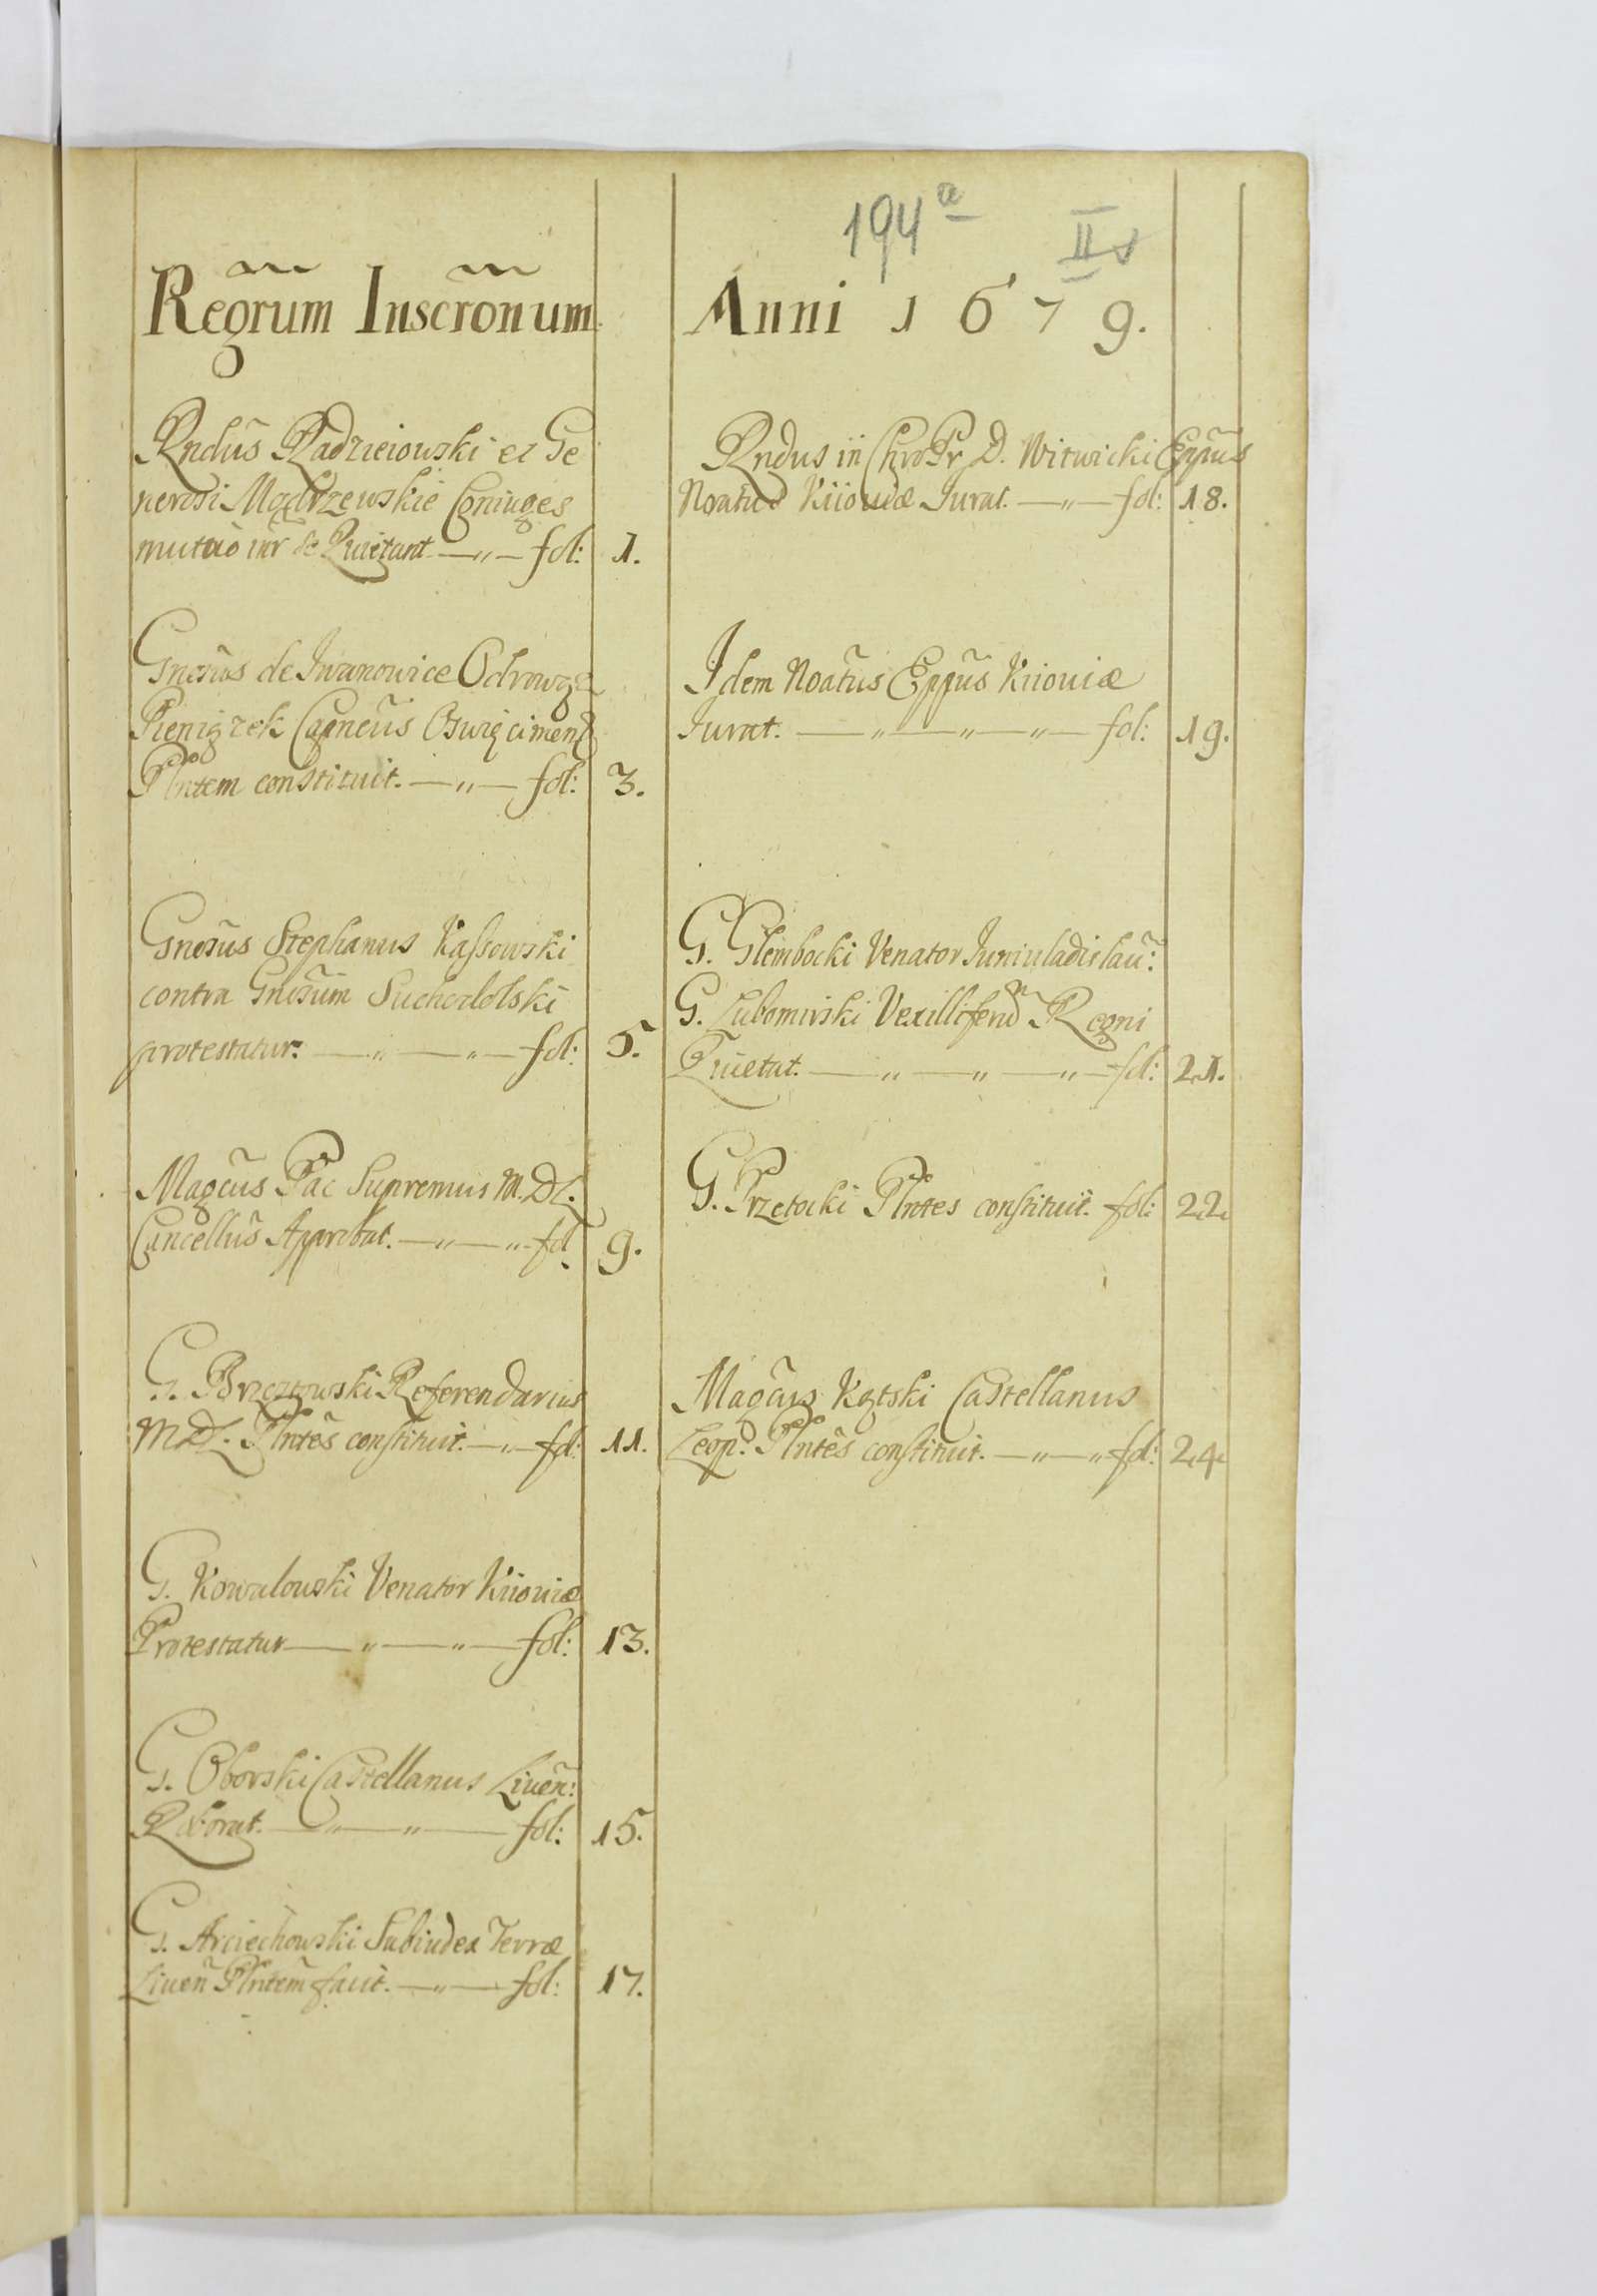 194a
II
Regrum Inscronum
Anni 1679.
Rndus Radzieiowski et Ge
nerosi Modrzewskie Coniuges
mutuo inr se Quietant — " — fol: 1.
Gnosus de Iwanowice Odrowąż
Pieniązek Capneus Oswięcimens
Plntem constituit. — " — fol: 3.
Gnosus Stephanus Kassowski
contra Gnosum Suchodolski
protestatur. — " — " — fol: 5.
Magcus Pac Supremus M.D.L.
Cancellus Approbat. — " — " fol 9.
G. Brzoztowski Referendarius
MDL. Plntes constituit. — " — fol: 11.
G. Kowalowski Venator Kiioviæ
Protestatur — " — " — fol: 13.
G. Oborski Castellanus Liuen:
Roborat. — " — " — fol: 15.
G. Arciechowski Subiudex Terræ
Liuen Plntem facit. — " — fol: 17.
Rndus in Chro Pr D. Witwicki Eppus
Noatus Kiioviæ Iurat. — " — fol: 18.
Idem Noatus Eppus Kiioviæ
Iurat. — " — " — " — fol: 19.
G. Glembocki Venator Iuniuladislau:
G. Lubomirski Vexilliferum Regni
Quietat. — " — " — " — fol: 21.
G. Przetocki Plntes constituit. fol: 22.
Magcus Kątski Castellanus
Leop: Plntes constituit. — " — " fol: 24.